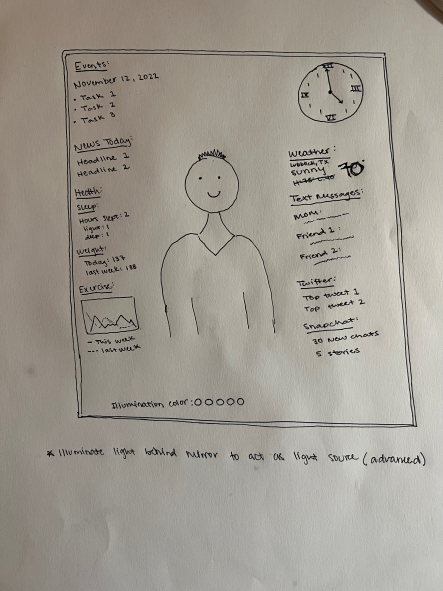 Events:
November 12, 2022
• Task 1
• Task 2
• Task 3
News Today:
Headline 1
Headline 2
Health:
Sleep:
Hours slept: 2
light: 1
deep: 1
Weight:
Today: 187
last week: 188
Exercise:
- This week
--- last week
XII
III
VI
IX
Weather:
Lubbock, TX
sunny 70°
Text Messages:
Mom:
Friend 1:
Friend 2:
Twitter:
Top tweet 1
Top tweet 2
Snapchat:
30 New chats
5 stories
Illumination color:
* Illuminate light behind mirror to act as light source (advanced)